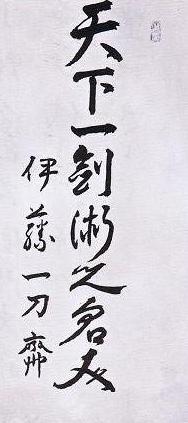 天下一剣術之名人
伊藤一刀斎